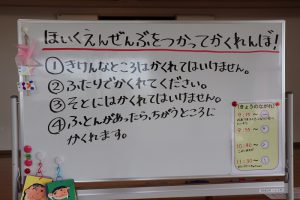 ほいくえんぜんぶをつかってかくれんぼ！
①きけんなところはかくれてはいけません。
②ふたりでかくれてください。
③そとにはかくれてはいけません。
④ふとんがあったら、ちがうところに
かくれます。
きょうのながれ
9:15〜
9:55〜
10:40〜
11:30〜